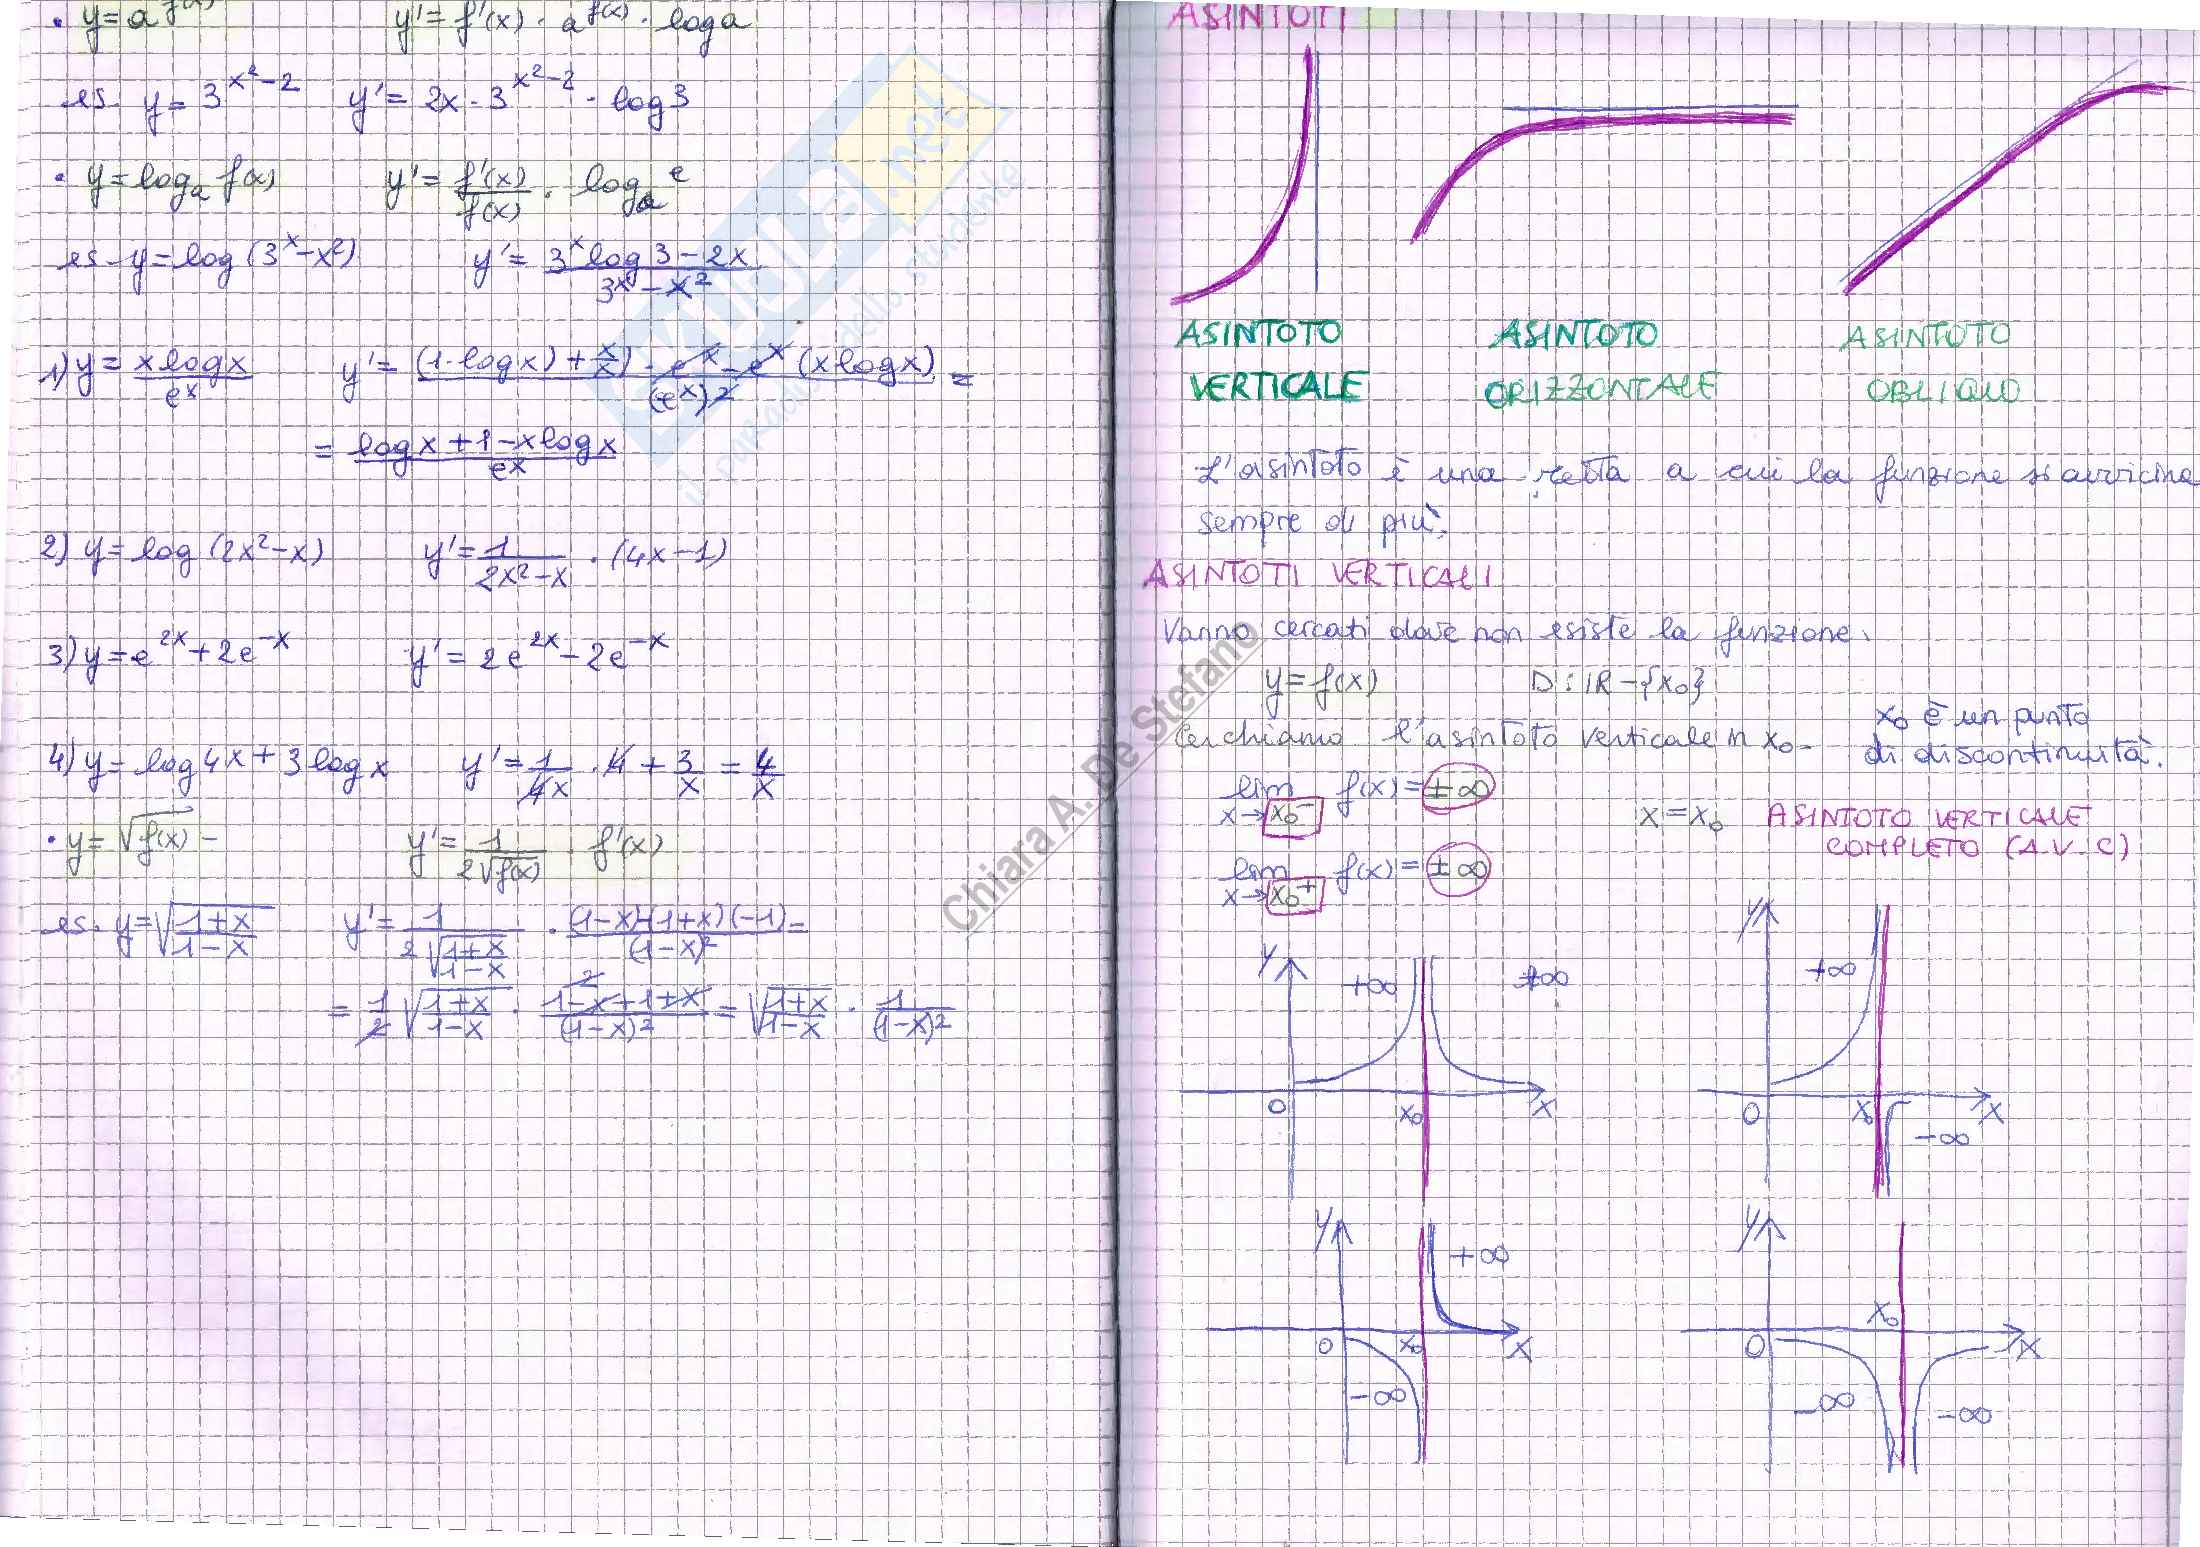 • y = a^f(x) y' = f'(x) · a^f(x) · log a
es- y = 3^x²-2 y' = 2x · 3^x²-2 · log 3
• y = log_a f(x) y' = f'(x)/f(x) · log_a e
es- y = log (3^x - x²) y' = (3^x log 3 - 2x)/(3^x - x²)
1) y = (x log x)/e^x y' = ((1·log x) + x/x) · e^x - e^x (x log x)/(e^x)² =
= (log x + 1 - x log x)/e^x
2) y = log (2x² - x) y' = 1/(2x² - x) · (4x - 1)
3) y = e^2x + 2e^-x y' = 2e^2x - 2e^-x
4) y = log 4x + 3 log x y' = 1/4x · 4 + 3/x = 4/x
• y = √f(x) - y' = 1/(2√f(x)) · f'(x)
es. y = √((1+x)/(1-x)) y' = 1/(2√((1+x)/(1-x))) · ((1-x)-(1+x)(-1))/(1-x)² =
= 1/2 √((1+x)/(1-x)) · (1-x+1+x)/(1-x)² 2 = √((1+x)/(1-x)) · 1/(1-x)²
Skuola.net
il paradiso dello studente
Chiara A. De Stefano
ASINTOTI
ASINTOTO VERTICALE
ASINTOTO ORIZZONTALE
ASINTOTO OBLIQUO
L'asintoto è una retta a cui la funzione si avvicina
sempre di più.
ASINTOTI VERTICALI
Vanno cercati dove non esiste la funzione.
y = f(x) D: IR - {x₀}
Cerchiamo l'asintoto verticale in x₀-
x₀ è un punto
di discontinuità.
lim x→x₀⁻ f(x) = ±∞
x = x₀ ASINTOTO VERTICALE
COMPLETO (A.V.C)
lim x→x₀⁺ f(x) = ±∞
y +∞ +∞
0 x₀ x
y +∞
0 x₀ x
-∞
y +∞
0 x₀ x
-∞
y x₀
0 x
-∞ -∞